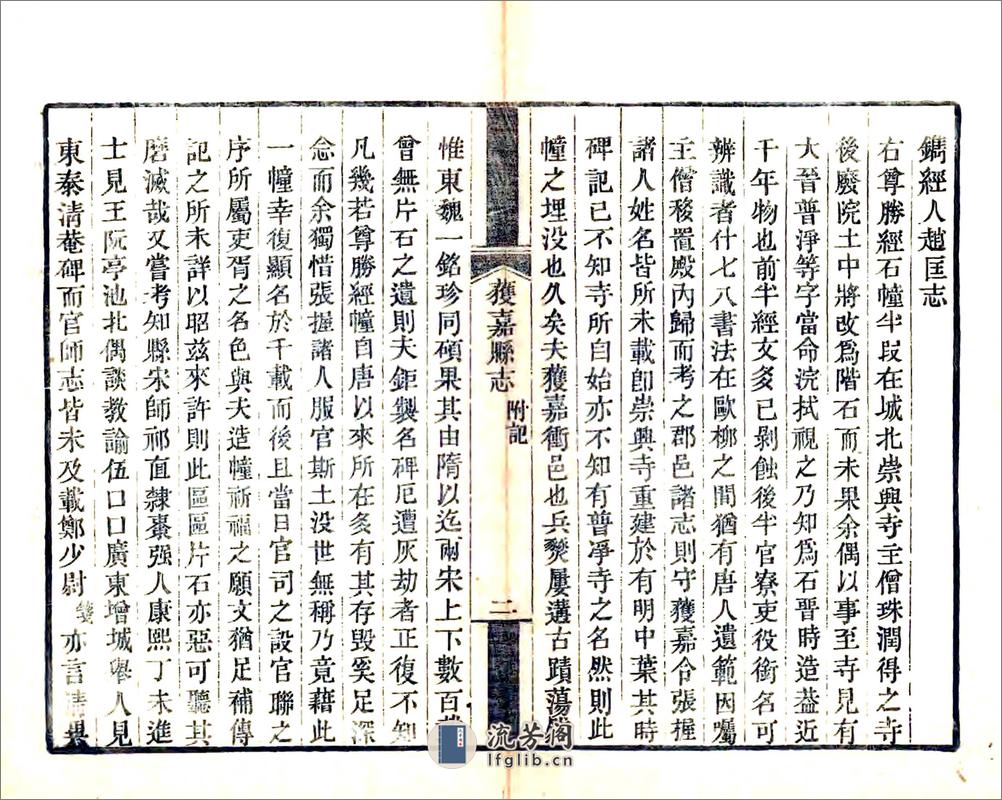 鐫經人趙匡志
右尊勝經石幢半段在城北崇興寺主僧珠潤得之寺
後廢院土中將改爲階石而未果余偶以事至寺見有
大晉普淨等字當命浣拭視之乃知爲石晉時造葢近
千年物也前半經文多已剝蝕後半官寮吏役銜名可
辨識者什七八書法在歐柳之間猶有唐人遺範因囑
主僧移置殿內歸而考之郡邑諸志則守獲嘉令張握
諸人姓名皆所未載卽崇興寺重建於有明中葉其時
碑記已不知寺所自始亦不知有普凈寺之名然則此
幢之埋没也久矣夫獲嘉衝邑也兵燹屢遘古蹟蕩
獲嘉縣志
附記
二
惟東魏一銘珍同碩果其由隋以迄兩宋上下數百
曾無片石之遺則夫鉅製名碑厄遭灰劫者正復不知
凡幾若尊勝經幢自唐以來所在多有其存毀奚足深
念而余獨惜張握諸人服官斯土没世無稱乃竟藉此
一幢幸復顯名於千載而後且當日官司之設官聯之
序所屬吏胥之名色與夫造幢祈福之願文猶足補傳
記之所未詳以昭兹來許則此區區片石亦惡可聽其
磨滅哉又嘗考知縣宋師祁直隸棗强人康熙丁未進
士見王阮亭池北偶談教諭伍口口廣東增城舉人見
東秦清菴碑而官師志皆未及載鄭少尉箋亦言
流芳阁
lfglib.cn